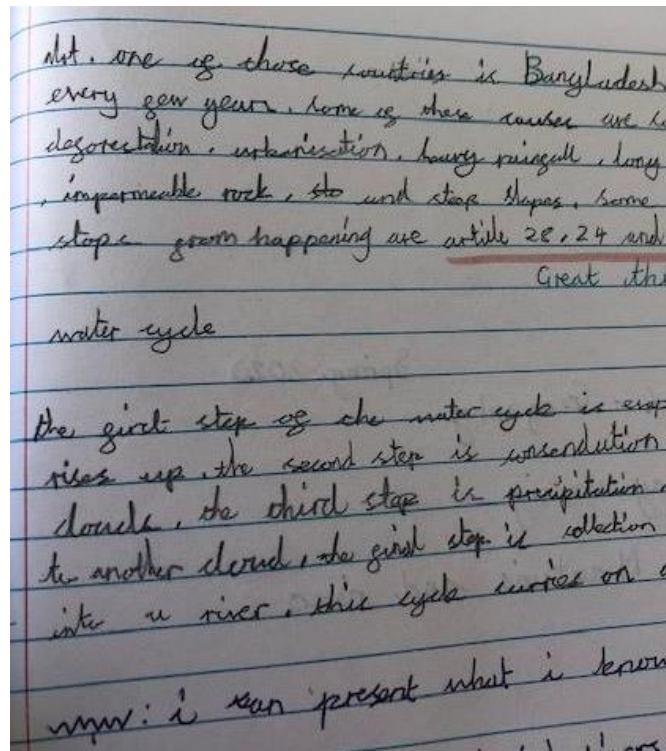 one of those countries is Bangladesh
every few years. some of these causes are
deforestation. urbanisation, heavy raingall, long
, impermeable rock, and steep slopes, some
stops from happening are article 28, 24 and
Great
water cycle
the first step of the water cycle is evap
rises up. the second step is consendution
clouds, the third step is precipitation
to another cloud, the final step is collection
into a river. this cycle carries on
www: i can present what i know